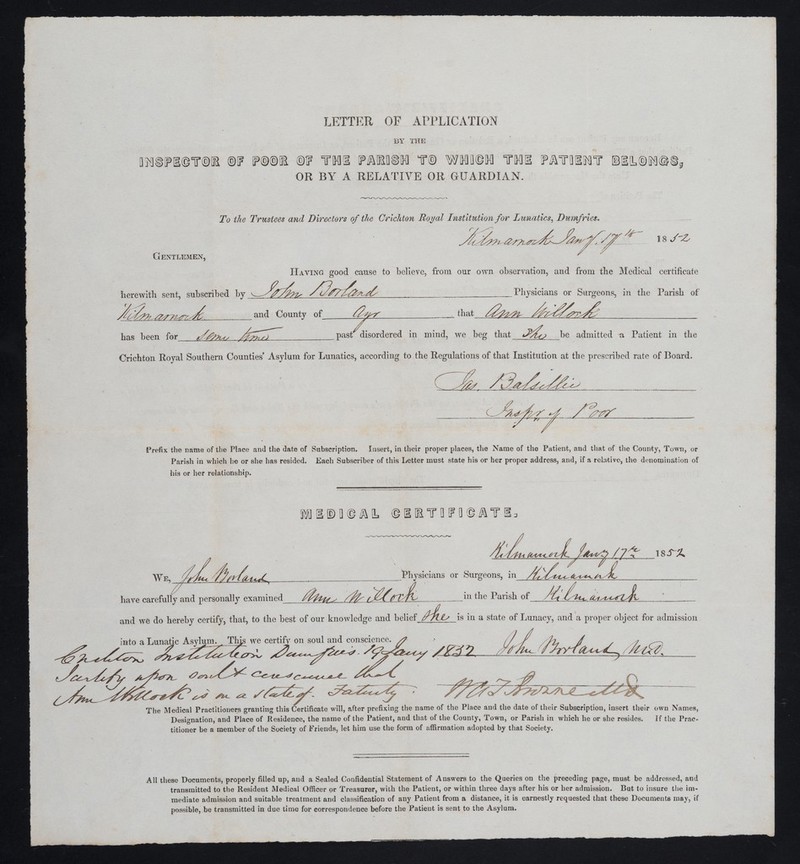 LETTER OF APPLICATION
BY THE
INSPECTOR OF POOR OF THE PARISH TO WHICH THE PATIENT BELONGS,
OR BY A RELATIVE OR GUARDIAN.
To the Trustees and Directors of the Crichton Royal Institution for Lunatics, Dumfries.
Kilmarnock Jany. 17th 1852
GENTLEMEN,
HAVING good cause to believe, from our own observation, and from the Medical certificate
herewith sent, subscribed by John Borland Physicians or Surgeons, in the Parish of
Kilmarnock and County of Ayr that Ann Willock
has been for some time past disordered in mind, we beg that She be admitted a Patient in the
Crichton Royal Southern Counties' Asylum for Lunatics, according to the Regulations of that Institution at the prescribed rate of Board.
Jas. Balsillie
Inspr of Poor
Prefix the name of the Place and the date of Subscription. Insert, in their proper places, the Name of the Patient, and that of the County, Town, or
Parish in which he or she has resided. Each Subscriber of this Letter must state his or her proper address, and, if a relative, the denomination of
his or her relationship.
MEDICAL CERTIFICATE.
Kilmarnock Jany 17th 1852
WE, John Borland Physicians or Surgeons, in Kilmarnock
have carefully and personally examined Ann Willock in the Parish of Kilmarnock
and we do hereby certify, that, to the best of our knowledge and belief she is in a state of Lunacy, and a proper object for admission
into a Lunatic Asylum. This we certify on soul and conscience.
John Borland, M.D.
Crichton Institution Dumfries. 19 Jany 1852
I certify upon soul & conscience that
Ann Willock is in a state of Fatuity. W A F Browne MD
The Medical Practitioners granting this Certificate will, after prefixing the name of the Place and the date of their Subscription, insert their own Names,
Designation, and Place of Residence, the name of the Patient, and that of the County, Town, or Parish in which he or she resides. If the Prac-
titioner be a member of the Society of Friends, let him use the form of affirmation adopted by that Society.
All these Documents, properly filled up, and a Sealed Confidential Statement of Answers to the Queries on the preceding page, must be addressed, and
transmitted to the Resident Medical Officer or Treasurer, with the Patient, or within three days after his or her admission. But to insure the im-
mediate admission and suitable treatment and classification of any Patient from a distance, it is earnestly requested that these Documents may, if
possible, be transmitted in due time for correspondence before the Patient is sent to the Asylum.